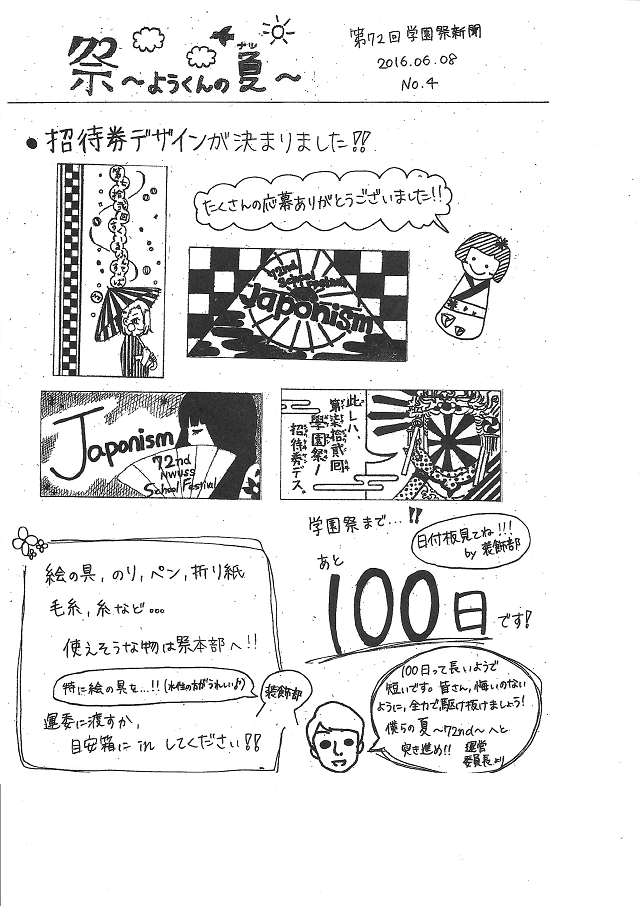 祭
～ようくんの夏～
ナツ
第72回学園祭新聞
2016.06.08
No.4
● 招待券デザインが決まりました!!
たくさんの応募ありがとうございました!!
72nd
School Festival
Japonism
Japonism
72nd
NWUSS
School Festival
此レハ、
第柒拾貮回
學園祭ノ
招待券デス。
学園祭まで…!!
日付板見てね!!!
by 装飾部
あと
100日です!
絵の具, のり, ペン, 折り紙
毛糸, 糸など…
使えそうな物は祭本部へ!!
特に絵の具を…!! (水性の方がうれしい♪)
装飾部
運委に渡すか,
目安箱に in してください!!
100日って長いようで
短いです。皆さん, 悔いのない
ように, 全力で駆け抜けましょう!
僕らの夏～72nd～へと
突き進め!!
運営
委員長より